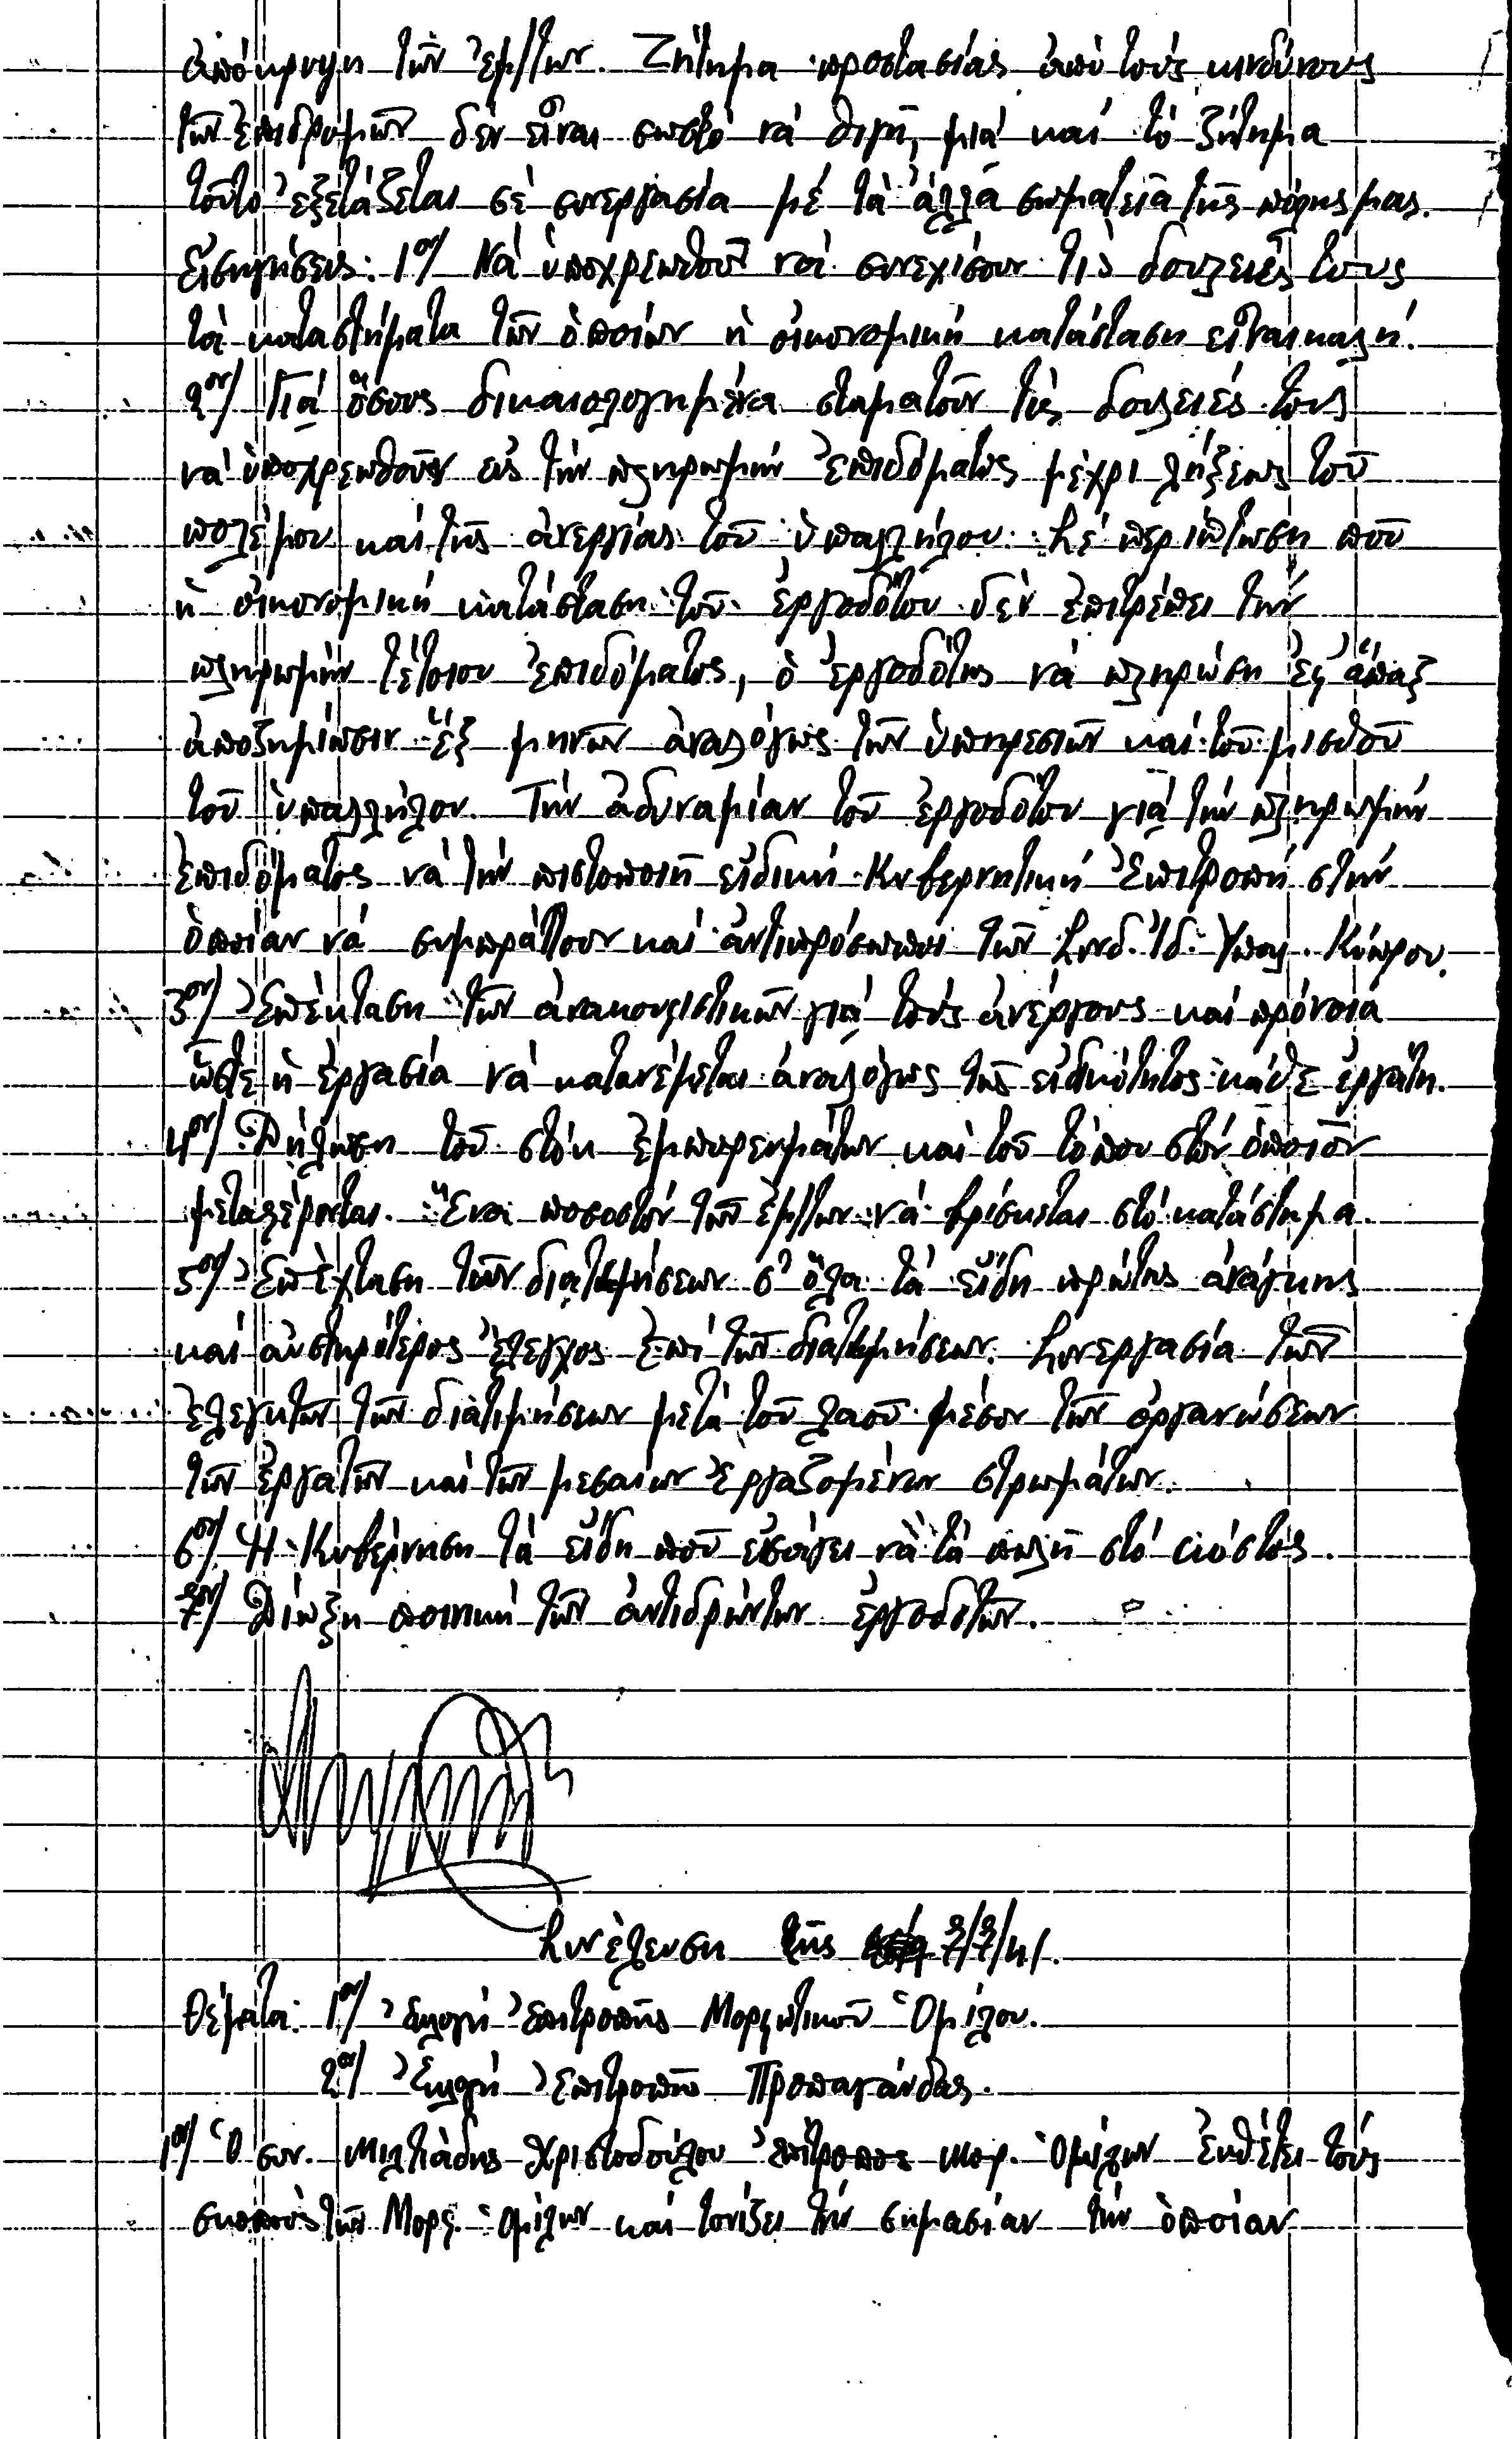 ἀπόκρυψη τῶν ἐμ/των. Ζήτημα προστασίας ἀπὸ τοὺς κινδύνους
τῶν ἐπιδρομῶν δὲν εἶναι σωστὸ νὰ θιγῇ, μιὰ καὶ τὸ ζήτημα
τοῦτο ἐξετάζεται σὲ συνεργασία μὲ τὰ ἄλλα σωματεῖα τῆς πόλης μας.
Εἰσηγήσεις: 1ον/ Νὰ ὑποχρεωθοῦν νὰ συνεχίσουν τὶς δουλειές τους
τὰ καταστήματα τῶν ὁποίων ἡ οἰκονομικὴ κατάσταση εἶναι καλή.
2ον/ Γιὰ ὅσους δικαιολογημένα σταματοῦν τὶς δουλειές τους
νὰ ὑποχρεωθοῦν εἰς τὴν πληρωμὴν ἐπιδόματος μέχρι λήξεως τοῦ
πολέμου καὶ τῆς ἀνεργίας τοῦ ὑπαλλήλου. Σὲ περίπτωση ποῦ
ἡ οἰκονομικὴ κατάσταση τοῦ ἐργοδότου δὲν ἐπιτρέπει τὴν
πληρωμὴν τέτοιου ἐπιδόματος, ὁ ἐργοδότης νὰ πληρώση ἐφ' ἅπαξ
ἀποζημίωσιν ἕξ μηνῶν ἀναλόγως τῶν ὑπηρεσιῶν καὶ τοῦ μισθοῦ
τοῦ ὑπαλλήλου. Τὴν ἀδυναμίαν τοῦ ἐργοδότου γιὰ τὴν πληρωμὴν
ἐπιδόματος νὰ τὴν πιστοποιῆ εἰδικὴ Κυβερνητικὴ Ἐπιτροπὴ στὴν
ὁποίαν νὰ συμπράττουν καὶ ἀντιπρόσωποι τῶν Συνδ. Ἰδ. Ὑπαλ. Κύπρου.
3ον/ Ἐπέκταση τῶν ἀνακουφιστικῶν γιὰ τοὺς ἀνέργους καὶ πρόνοια
ὥστε ἡ ἐργασία νὰ κατανέμεται ἀναλόγως τῆς εἰδικότητος κάθε ἐργάτη.
4ον/ Δήλωση τοῦ στὸκ ἐμπορευμάτων καὶ τοῦ τόπου στὸν ὁποῖον
μεταφέρονται. Ἕνα ποσοστὸν τῶν ἐμ/των νὰ βρίσκεται στὸ κατάστημα.
5ον/ Ἐπέκταση τῶν διατιμήσεων σ' ὅλα τὰ εἴδη πρώτης ἀνάγκης
καὶ αὐστηρότερος ἔλεγχος ἐπὶ τῶν διατιμήσεων. Συνεργασία τῶν
ἐλεγκτῶν τῶν διατιμήσεων μετὰ τοῦ λαοῦ μέσον τῶν ὀργανώσεων
τῶν ἐργατῶν καὶ τῶν μεσαίων ἐργαζομένων στρωμάτων.
6ον/ Ἡ Κυβέρνηση τὰ εἴδη ποῦ εἰσάγει νὰ τὰ πωλῆ στὸ κόστος.
7ον/ Δίωξη ποινικὴ τῶν ἀντιδρώντων ἐργοδοτῶν.
Συνέλευση τῆς 7/7/41.
Θέματα: 1ον/ Ἐκλογὴ Ἐπιτροπῆς Μορφωτικοῦ Ὁμίλου.
2ον/ Ἐκλογὴ Ἐπιτροπῆς Προπαγάνδας.
1ον/ Ὁ συν. Μιλτιάδης Χριστοδούλου ἐπίτροπος Μορ. Ὁμίλων ἐκθέτει τοὺς
σκοποὺς τῶν Μορφ. Ὁμίλων καὶ τονίζει τὴν σημασίαν τὴν ὁποίαν